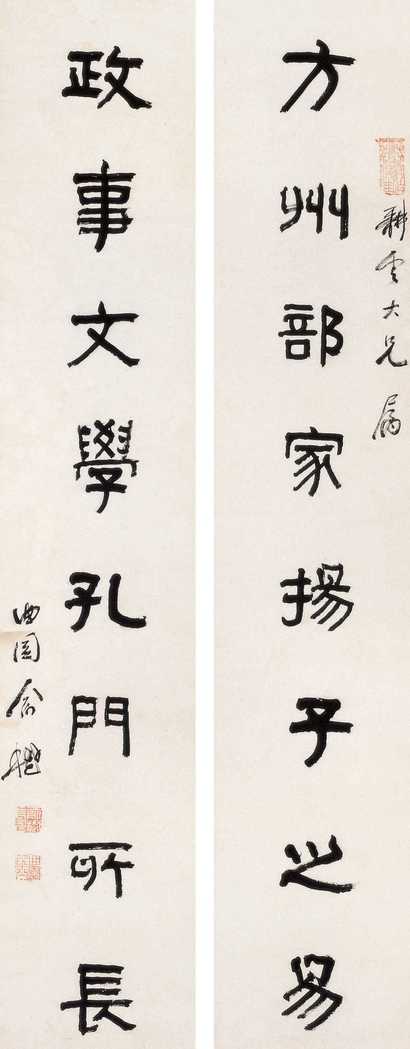 耕雲大兄属
方州部家揚子之易
政事文學孔門所長
曲園俞樾